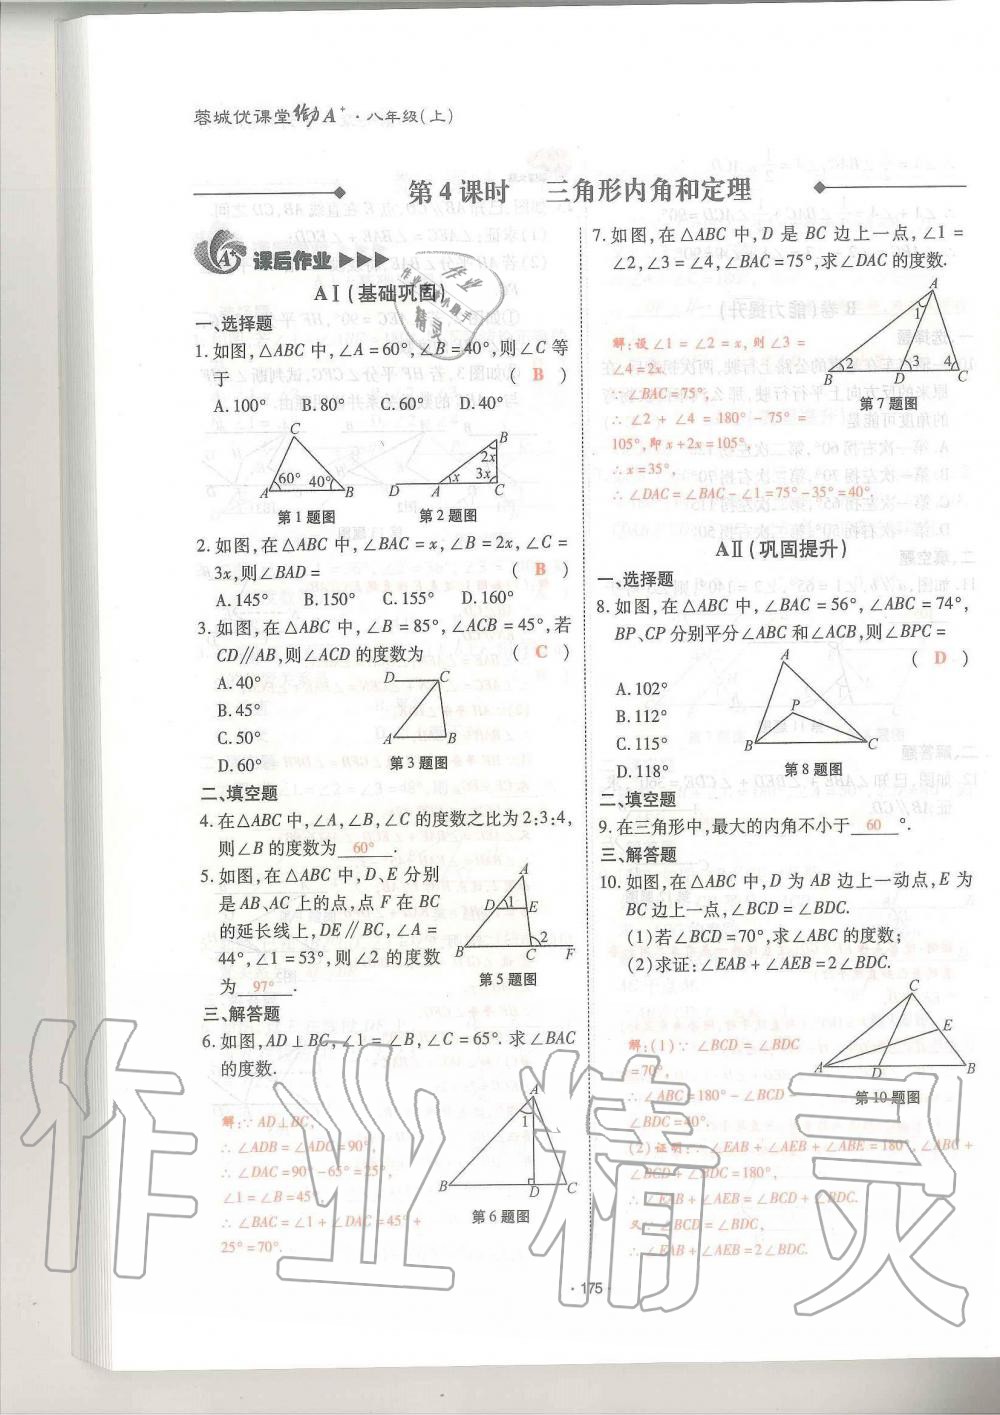 蓉城优课堂给力A⁺·八年级(上)
第4课时 三角形内角和定理
A⁺ 课后作业
AⅠ(基础巩固)
一、选择题
1. 如图,△ABC中,∠A=60°,∠B=40°,则∠C等
于 ( B )
A.100° B.80° C.60° D.40°
C
60° 40°
A B
第1题图
B
2x
x 3x
D A C
第2题图
2. 如图,在△ABC中,∠BAC=x,∠B=2x,∠C=
3x,则∠BAD= ( B )
A.145° B.150° C.155° D.160°
3. 如图,在△ABC中,∠B=85°,∠ACB=45°,若
CD∥AB,则∠ACD的度数为 ( C )
A.40°
B.45°
C.50°
D.60°
D C
A B
第3题图
二、填空题
4. 在△ABC中,∠A,∠B,∠C的度数之比为2:3:4,
则∠B的度数为 60° .
5. 如图,在△ABC中,D、E分别
是AB、AC上的点,点F在BC
的延长线上,DE∥BC,∠A=
44°,∠1=53°,则∠2的度数
为 97° .
A
D 1 E
B C 2 F
第5题图
三、解答题
6. 如图,AD⊥BC,∠1=∠B,∠C=65°.求∠BAC
的度数.
解:∵AD⊥BC,
∴∠ADB=∠ADC=90°,
∴∠DAC=90°-65°=25°,
∠1=∠B=45°,
∴∠BAC=∠1+∠DAC=45°+
25°=70°.
A
1
B D C
第6题图
7. 如图,在△ABC中,D是BC边上一点,∠1=
∠2,∠3=∠4,∠BAC=75°,求∠DAC的度数.
解:设∠1=∠2=x,则∠3=
∠4=2x.
∵∠BAC=75°,
∴∠2+∠4=180°-75°=
105°,即x+2x=105°,
∴x=35°,
∴∠DAC=∠BAC-∠1=75°-35°=40°.
A
1
2 3 4
B D C
第7题图
AⅡ(巩固提升)
一、选择题
8. 如图,在△ABC中,∠BAC=56°,∠ABC=74°,
BP、CP分别平分∠ABC和∠ACB,则∠BPC=
( D )
A.102°
B.112°
C.115°
D.118°
A
P
B C
第8题图
二、填空题
9. 在三角形中,最大的内角不小于 60 °.
三、解答题
10. 如图,在△ABC中,D为AB边上一动点,E为
BC边上一点,∠BCD=∠BDC.
(1)若∠BCD=70°,求∠ABC的度数;
(2)求证:∠EAB+∠AEB=2∠BDC.
C
E
A D B
第10题图
解:(1)∵∠BCD=∠BDC
=70°,
∴∠ABC=180°-∠BCD-
∠BDC=40°.
(2)证明:∵∠EAB+∠AEB+∠ABE=180°,∠ABC+
∠BCD+∠BDC=180°,
∴∠EAB+∠AEB=∠BCD+∠BDC.
又∵∠BCD=∠BDC,
∴∠EAB+∠AEB=2∠BDC.
·175·
作业精灵